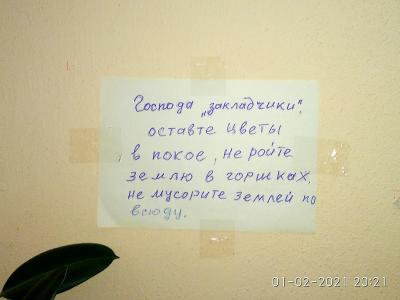 Господа "закладчики",
оставте цветы
в покое, не ройте
землю в горшках,
не мусорите землей по
всюду.
01-02-2021 20:21